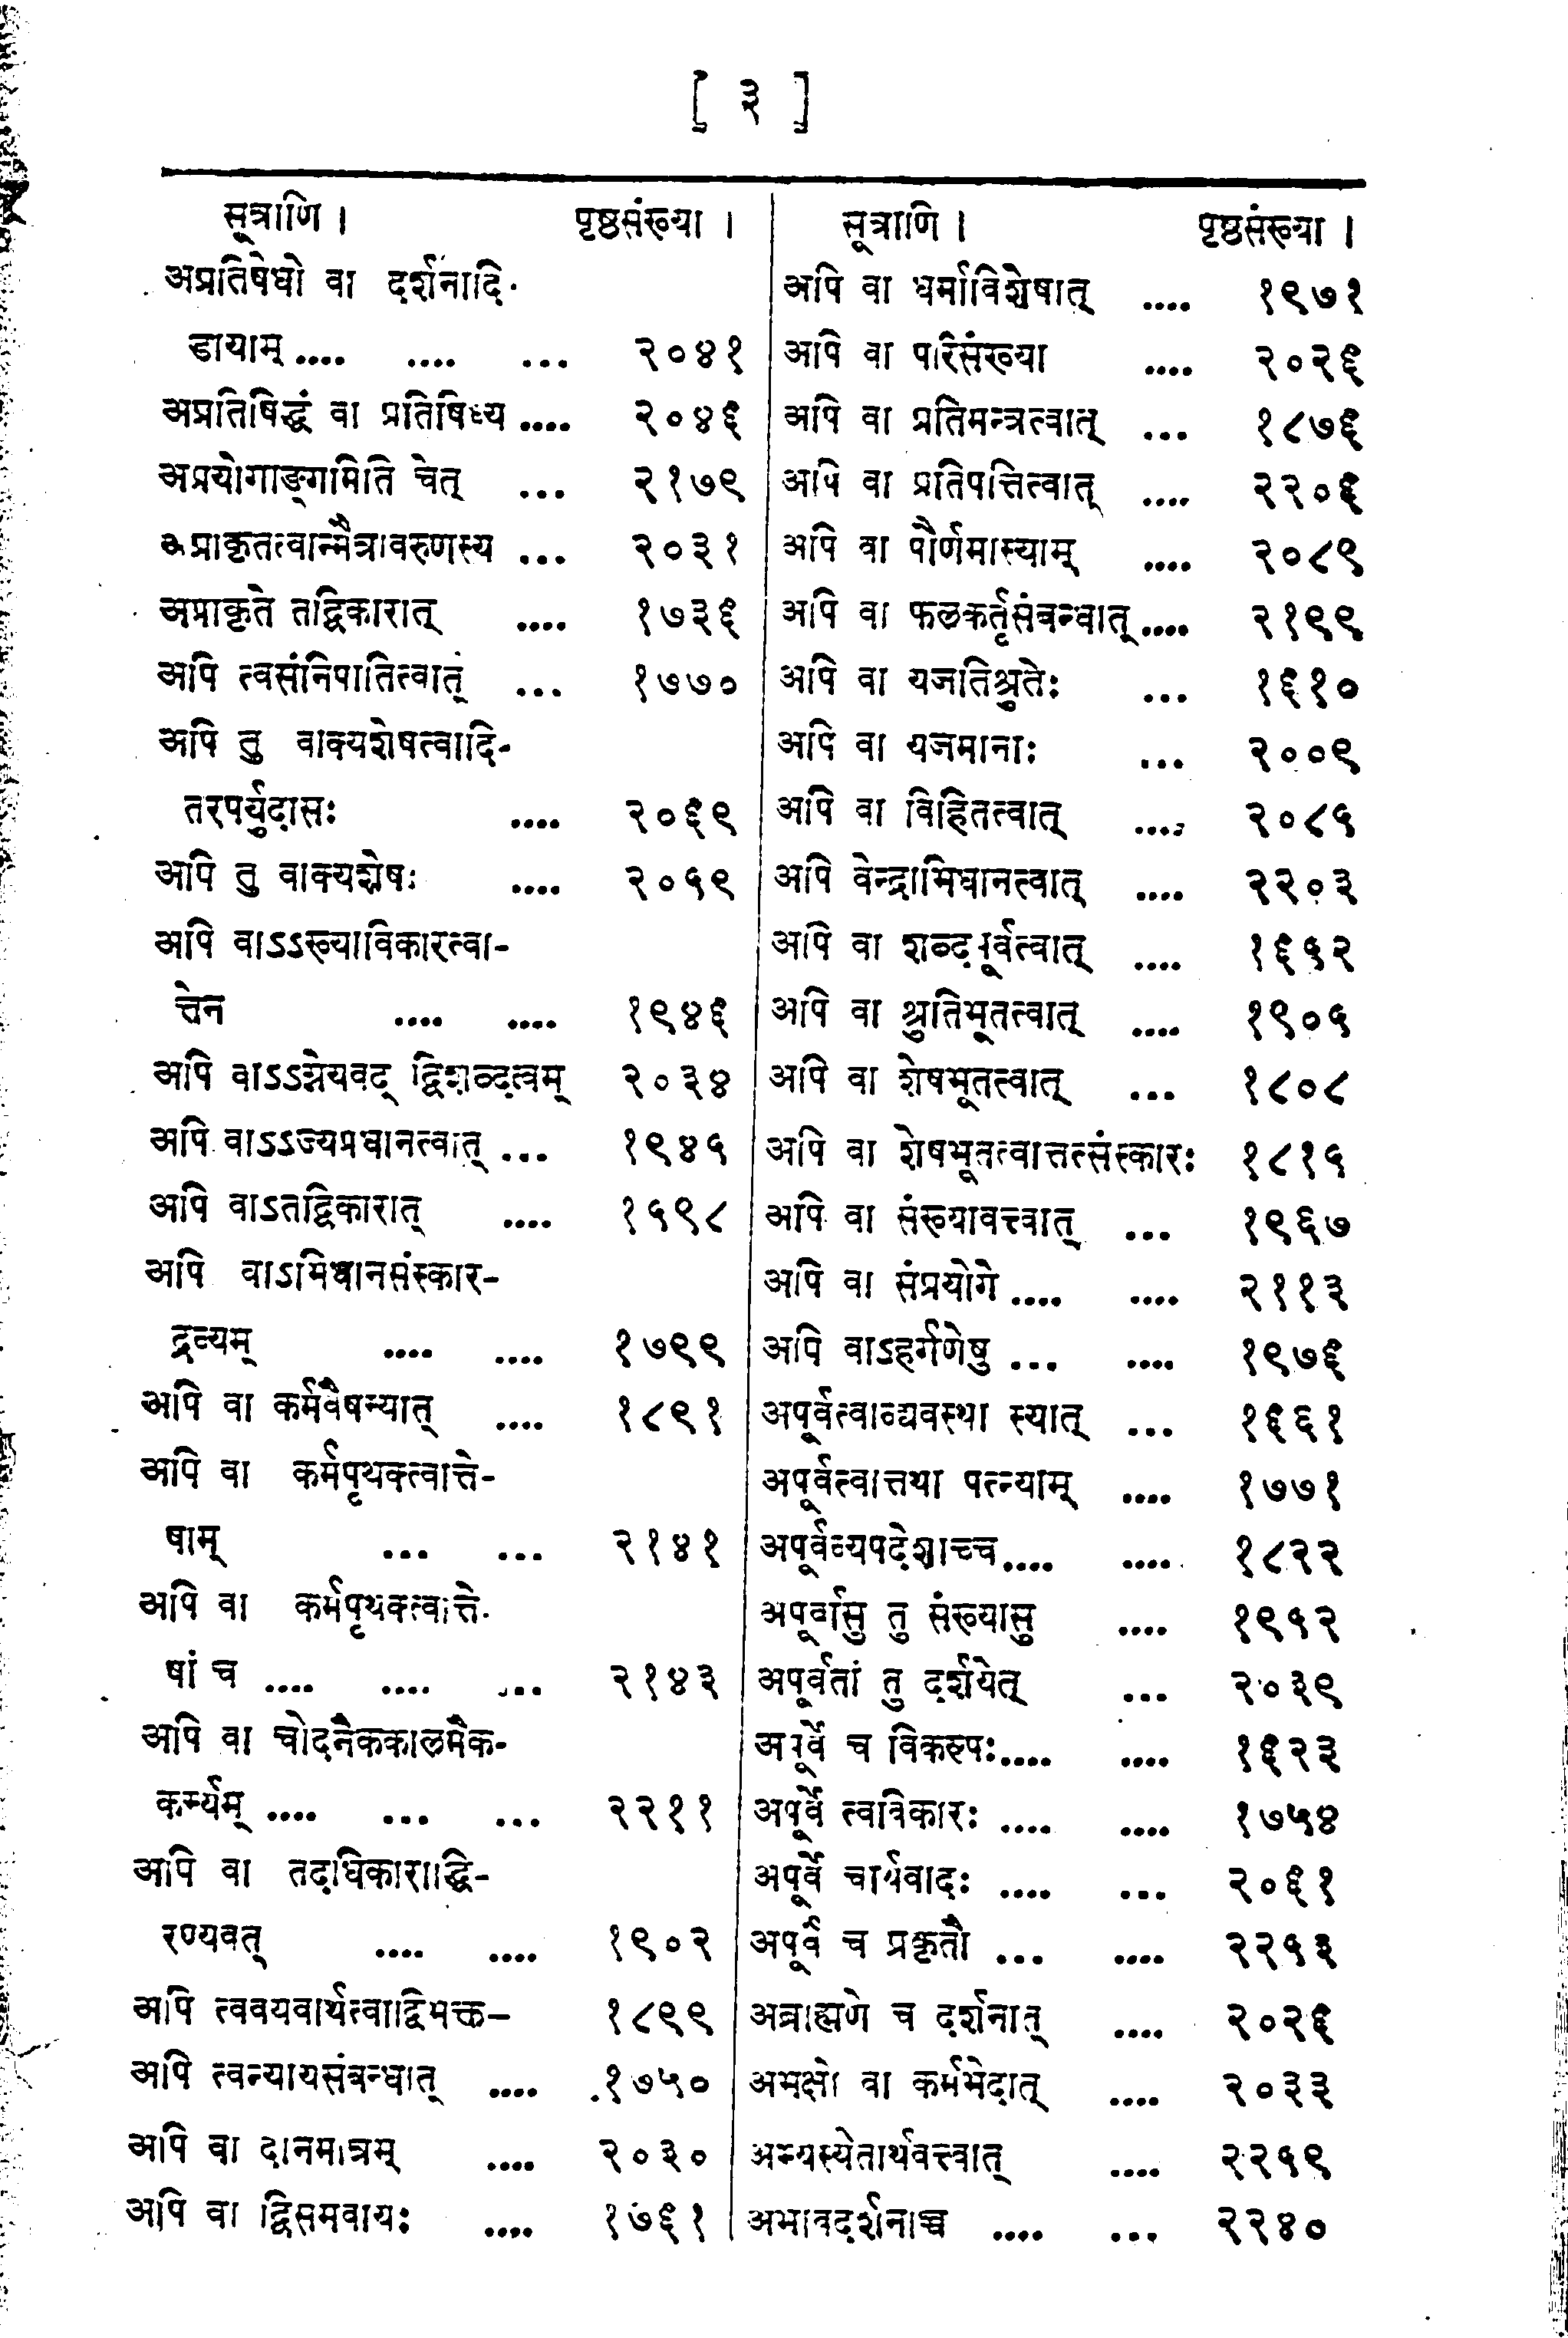 [ ३ ]
सूत्राणि । पृष्ठसंख्या ।
अप्रतिषेधो वा दर्शनादि-
डायाम् .... .... ... २०४१
अप्रतिषिद्धं वा प्रतिषिध्य .... २०४६
अप्रयोगाङ्गमिति चेत् ... २१७९
अप्राकृतत्वान्मैत्रावरुणस्य ... २०३१
अप्राकृते तद्विकारात् .... १७३६
अपि त्वसंनिपातित्वात् ... १७७०
अपि तु वाक्यशेषत्वादि-
तरपर्युदासः .... २०६९
अपि तु वाक्यशेषः .... २०५९
अपि वाऽऽख्याविकारत्वा-
त्तेन .... .... १९४६
अपि वाऽऽग्नेयवद् द्विशब्दत्वम् २०३४
अपि वाऽऽज्यप्रधानत्वात् ... १९४५
अपि वाऽतद्विकारात् .... १५९८
अपि वाऽभिधानसंस्कार-
द्रव्यम् .... .... १७९९
अपि वा कर्मवैषम्यात् .... १८९१
अपि वा कर्मपृथक्त्वात्ते-
षाम् ... ... २१४१
अपि वा कर्मपृथक्त्वात्ते-
षां च .... .... ... २१४३
अपि वा चोदनैककालमैक-
कर्म्यम् .... ... ... २२११
अपि वा तदधिकाराद्धि-
रण्यवत् .... .... १९०२
अपि त्ववयवार्थत्वाद्विभक्त– १८९९
अपि त्वन्यायसंबन्धात् .... १७५०
अपि वा दानमात्रम् .... २०३०
अपि वा द्विसमवायः .... १७६१
सूत्राणि । पृष्ठसंख्या ।
अपि वा धर्माविशेषात् .... १९७१
अपि वा परिसंख्या .... २०२६
अपि वा प्रतिमन्त्रत्वात् ... १८७६
अपि वा प्रतिपत्तित्वात् .... २२०६
अपि वा पौर्णमास्याम् .... २०८९
अपि वा फलकर्तृसंबन्धात् .... २१९९
अपि वा यजतिश्रुतेः ... १६१०
अपि वा यजमानाः ... २००९
अपि वा विहितत्वात् .... २०८५
अपि वेन्द्राभिधानत्वात् .... २२०३
अपि वा शब्दपूर्वत्वात् .... १६५२
अपि वा श्रुतिभूतत्वात् .... १९०५
अपि वा शेषभूतत्वात् ... १८०८
अपि वा शेषभूतत्वात्तत्संस्कारः १८१५
अपि वा संख्यावत्त्वात् ... १९६७
अपि वा संप्रयोगे .... .... २११३
अपि वाऽहर्गणेषु ... .... १९७६
अपूर्वत्वाव्द्यवस्था स्यात् ... १६६१
अपूर्वत्वात्तथा पत्न्याम् .... १७७१
अपूर्वव्यपदेशाच्च .... .... १८२२
अपूर्वासु तु संख्यासु .... १९५२
अपूर्वतां तु दर्शयेत् ... २०३९
अपूर्वे च विकल्पः .... .... १६२३
अपूर्वे त्वविकारः .... .... १७५४
अपूर्वे चार्थवादः .... ... २०६१
अपूर्वे च प्रकृतौ ... .... २२५३
अब्राह्मणे च दर्शनात् .... २०२६
अभक्षो वा कर्मभेदात् .... २०३३
अभ्यस्येतार्थवत्त्वात् .... २२५९
अभावदर्शनाच्च .... ... २२४०